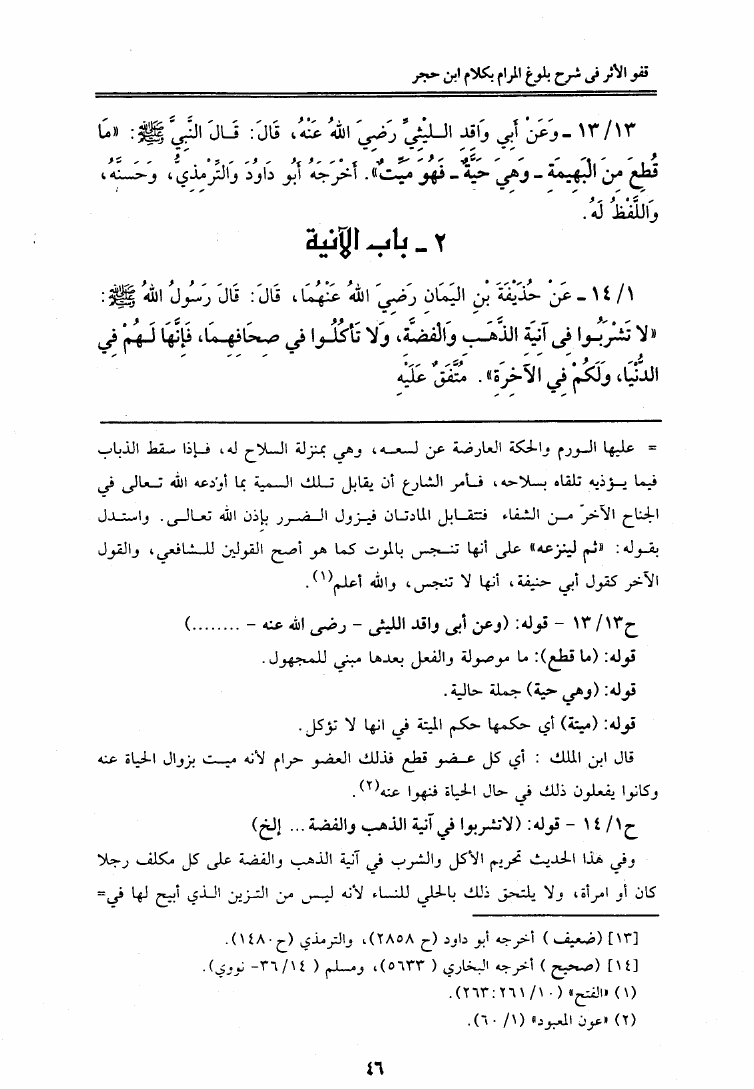 قفو الأثر فى شرح بلوغ المرام بكلام ابن حجر
١٣/١٣ ـ وَعَنْ أَبِي وَاقِدِ اللَّيْثِيِّ رَضِيَ اللهُ عَنْهُ، قَالَ: قَالَ النَّبِيُّ ﷺ: «مَا
قُطِعَ مِنَ الْبَهِيمَةِ ـ وَهِيَ حَيَّةٌ ـ فَهُوَ مَيِّتٌ». أَخْرَجَهُ أَبُو دَاوُدَ وَالتِّرْمِذِيُّ، وَحَسَّنَهُ،
وَاللَّفْظُ لَهُ.
٢ ـ باب الآنية
١٤/١ ـ عَنْ حُذَيْفَةَ بْنِ اليَمَانِ رَضِيَ اللهُ عَنْهُمَا، قَالَ: قَالَ رَسُولُ اللهِ ﷺ:
«لا تَشْرَبُوا فِى آنِيَةِ الذَّهَبِ وَالْفِضَّةِ، وَلا تَأْكُلُوا فِي صِحَافِهِمَا، فَإِنَّهَا لَهُمْ فِي
الدُّنْيَا، وَلَكُمْ فِي الآخِرَةِ». مُتَّفَقٌ عَلَيْهِ
= عليها الورم والحكة العارضة عن لسعه، وهي بمنزلة السلاح له، فإذا سقط الذباب
فيما يؤذيه تلقاه بسلاحه، فأمر الشارع أن يقابل تلك السمية بما أودعه الله تعالى في
الجناح الآخر من الشفاء فتتقابل المادتان فيزول الضرر بإذن الله تعالى. واستدل
بقوله: «ثم لينزعه» على أنها تنجس بالموت كما هو أصح القولين للشافعي، والقول
الآخر كقول أبي حنيفة، أنها لا تنجس، والله أعلم(١).
ح١٣/١٣ - قوله: (وعن أبى واقد الليثى - رضى الله عنه - ........)
قوله: (ما قطع): ما موصولة والفعل بعدها مبني للمجهول.
قوله: (وهي حية) جملة حالية.
قوله: (ميتة) أي حكمها حكم الميتة في انها لا تؤكل.
قال ابن الملك : أي كل عضو قطع فذلك العضو حرام لأنه ميت بزوال الحياة عنه
وكانوا يفعلون ذلك في حال الحياة فنهوا عنه(٢).
ح١٤/١ - قوله: (لاتشربوا في آنية الذهب والفضة... إلخ)
وفي هذا الحديث تحريم الأكل والشرب في آنية الذهب والفضة على كل مكلف رجلا
كان أو امرأة، ولا يلتحق ذلك بالحلي للنساء لأنه ليس من التزين الذي أبيح لها في=
[١٣] (ضعيف ) أخرجه أبو داود (ح ٢٨٥٨)، والترمذي (ح١٤٨٠).
[١٤] (صحيح ) أخرجه البخاري ( ٥٦٣٣)، ومسلم ( ٣٦/١٤- نووي).
(١) «الفتح» (٢٦٣:٢٦١/١٠).
(٢) «عون المعبود» (٦٠/١).
٤٦